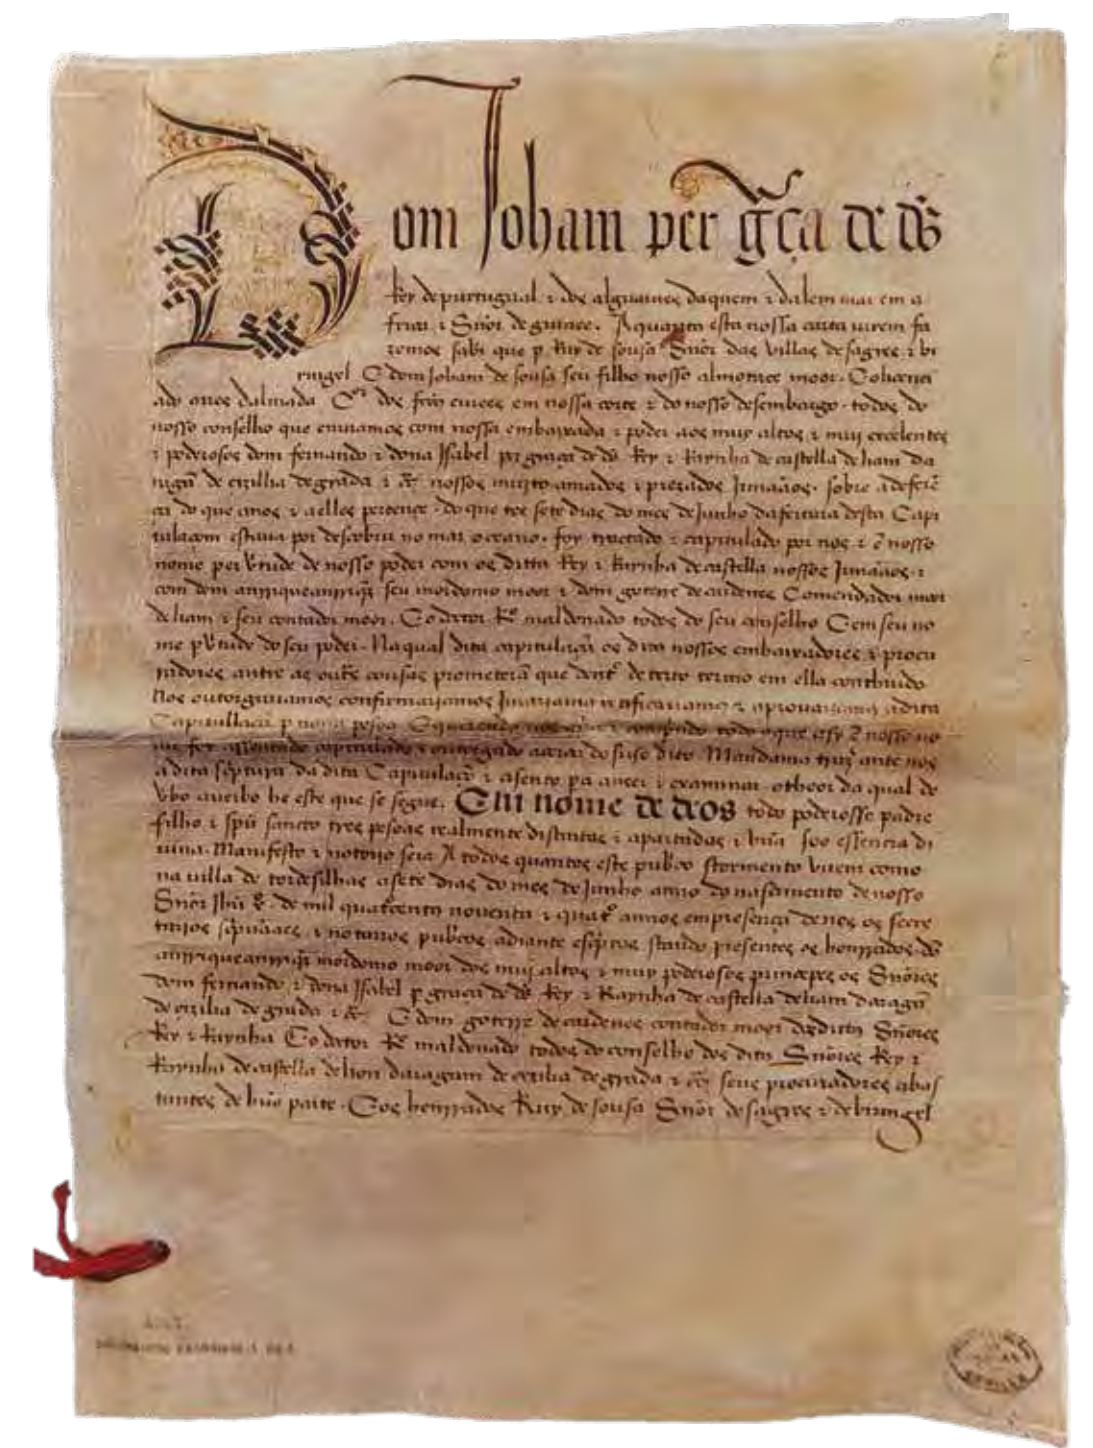 Dom Joham per g̃ça de ds̃
Rey de purtugual ⁊ dos alguarues daquem ⁊ dalem mar em a
frica ⁊ Sñor de guinee. A quantos esta nossa carta virem fa
zemos sabr que p Ruy de sousa Sñor das villas de sagres ⁊ bi
ringel E dom Joham de sousa seu filho nosso almotace moor. E o licenci
ado aires dalmada dos feitos ciuees em nossa corte ⁊ do nosso desembargo. todos do
nosso conselho que enuiamos com nossa embaixada ⁊ poder aos muy altos ⁊ muy excelentes
⁊ poderosos dom fernando ⁊ dona Isabel per graça de ds̃ Rey ⁊ Raynha de castella de liam da
ragã de cizilia de grada ⁊ c̃ nossos muyto amados ⁊ prezados Jrmaãos. sobre a deferẽ
ça do que a nos ⁊ a elles pertence. do que tee sete dias do mes de Junho da fectura desta Capi
tulaçom estaua por descobrir no mar oceano. foy tractado ⁊ capitulado por nos ⁊ ẽ nosso
nome per vertude de nosso poder com os dittos Rey ⁊ Raynha de castella nossos Jrmaãos. ⁊
com dom anrrique anrriqz seu mordomo moor ⁊ dom goterre de cardenes Comendador moor
de liam ⁊ seu contador moor. E o dotor Rº maldonado todos do seu conselho E em seu no
me p vtude do seu poder. Na qual dita capitulaçã os ditos nossos embaixadores ⁊ procu
radores antre as outras cousas prometerã que dentro de certo termo em ella conthiudo
Nos outorgariamos confirmariamos Jurariamos ratificariamos ⁊ aprouariamos a dita
Capitullaçã p nossa pesoa E querendo ⁊ comprindo todo o que asy ẽ nosso no
me foy assentado capitulado ⁊ outorgado acerca do suso dito Mandamos trazer ante nos
a dita scriptura da dita Capitulaçõ ⁊ asento pa a veer ⁊ examinar. o theor da qual de
vbo a verbo he este que se segue. Em nome de deos todo poderosso padre
filho ⁊ spũ sancto tres pesoas realmente distintas ⁊ apartadas ⁊ hũa soo essencia di
uina. Manifesto ⁊ notorio seia A todos quantos este pubco stormento virem como
na villa de tordesilhas a sete dias do mes de Junho anno do nascimento de nosso
Sñor Jhũ xº de mil quatrcentos nouenta ⁊ quatrº annos em presença de nos os secre
tarios scripuaães ⁊ notarios pubcos adiante escriptos stando presentes os honrrados dõ
anrrique anrriqz mordomo moor dos muy altos ⁊ muy poderosos principes os Sñores
dom fernando ⁊ dona Isabel p graça de ds̃ Rey ⁊ Raynha de castella de liam daragã
de cizilia de grada ⁊ c̃ E dom goterre de cardenes contador moor dos ditos Sñores
Rey ⁊ Raynha E o dotor Rº maldonado todos do conselho dos ditos Sñores Rey ⁊
Raynha de castella de lion daragam de cizilia de grada ⁊ c̃ seus procuradores abas
tantes de hũa parte. E os honrrados Ruy de sousa Sñor de sagres ⁊ de biringel
SEVILLA